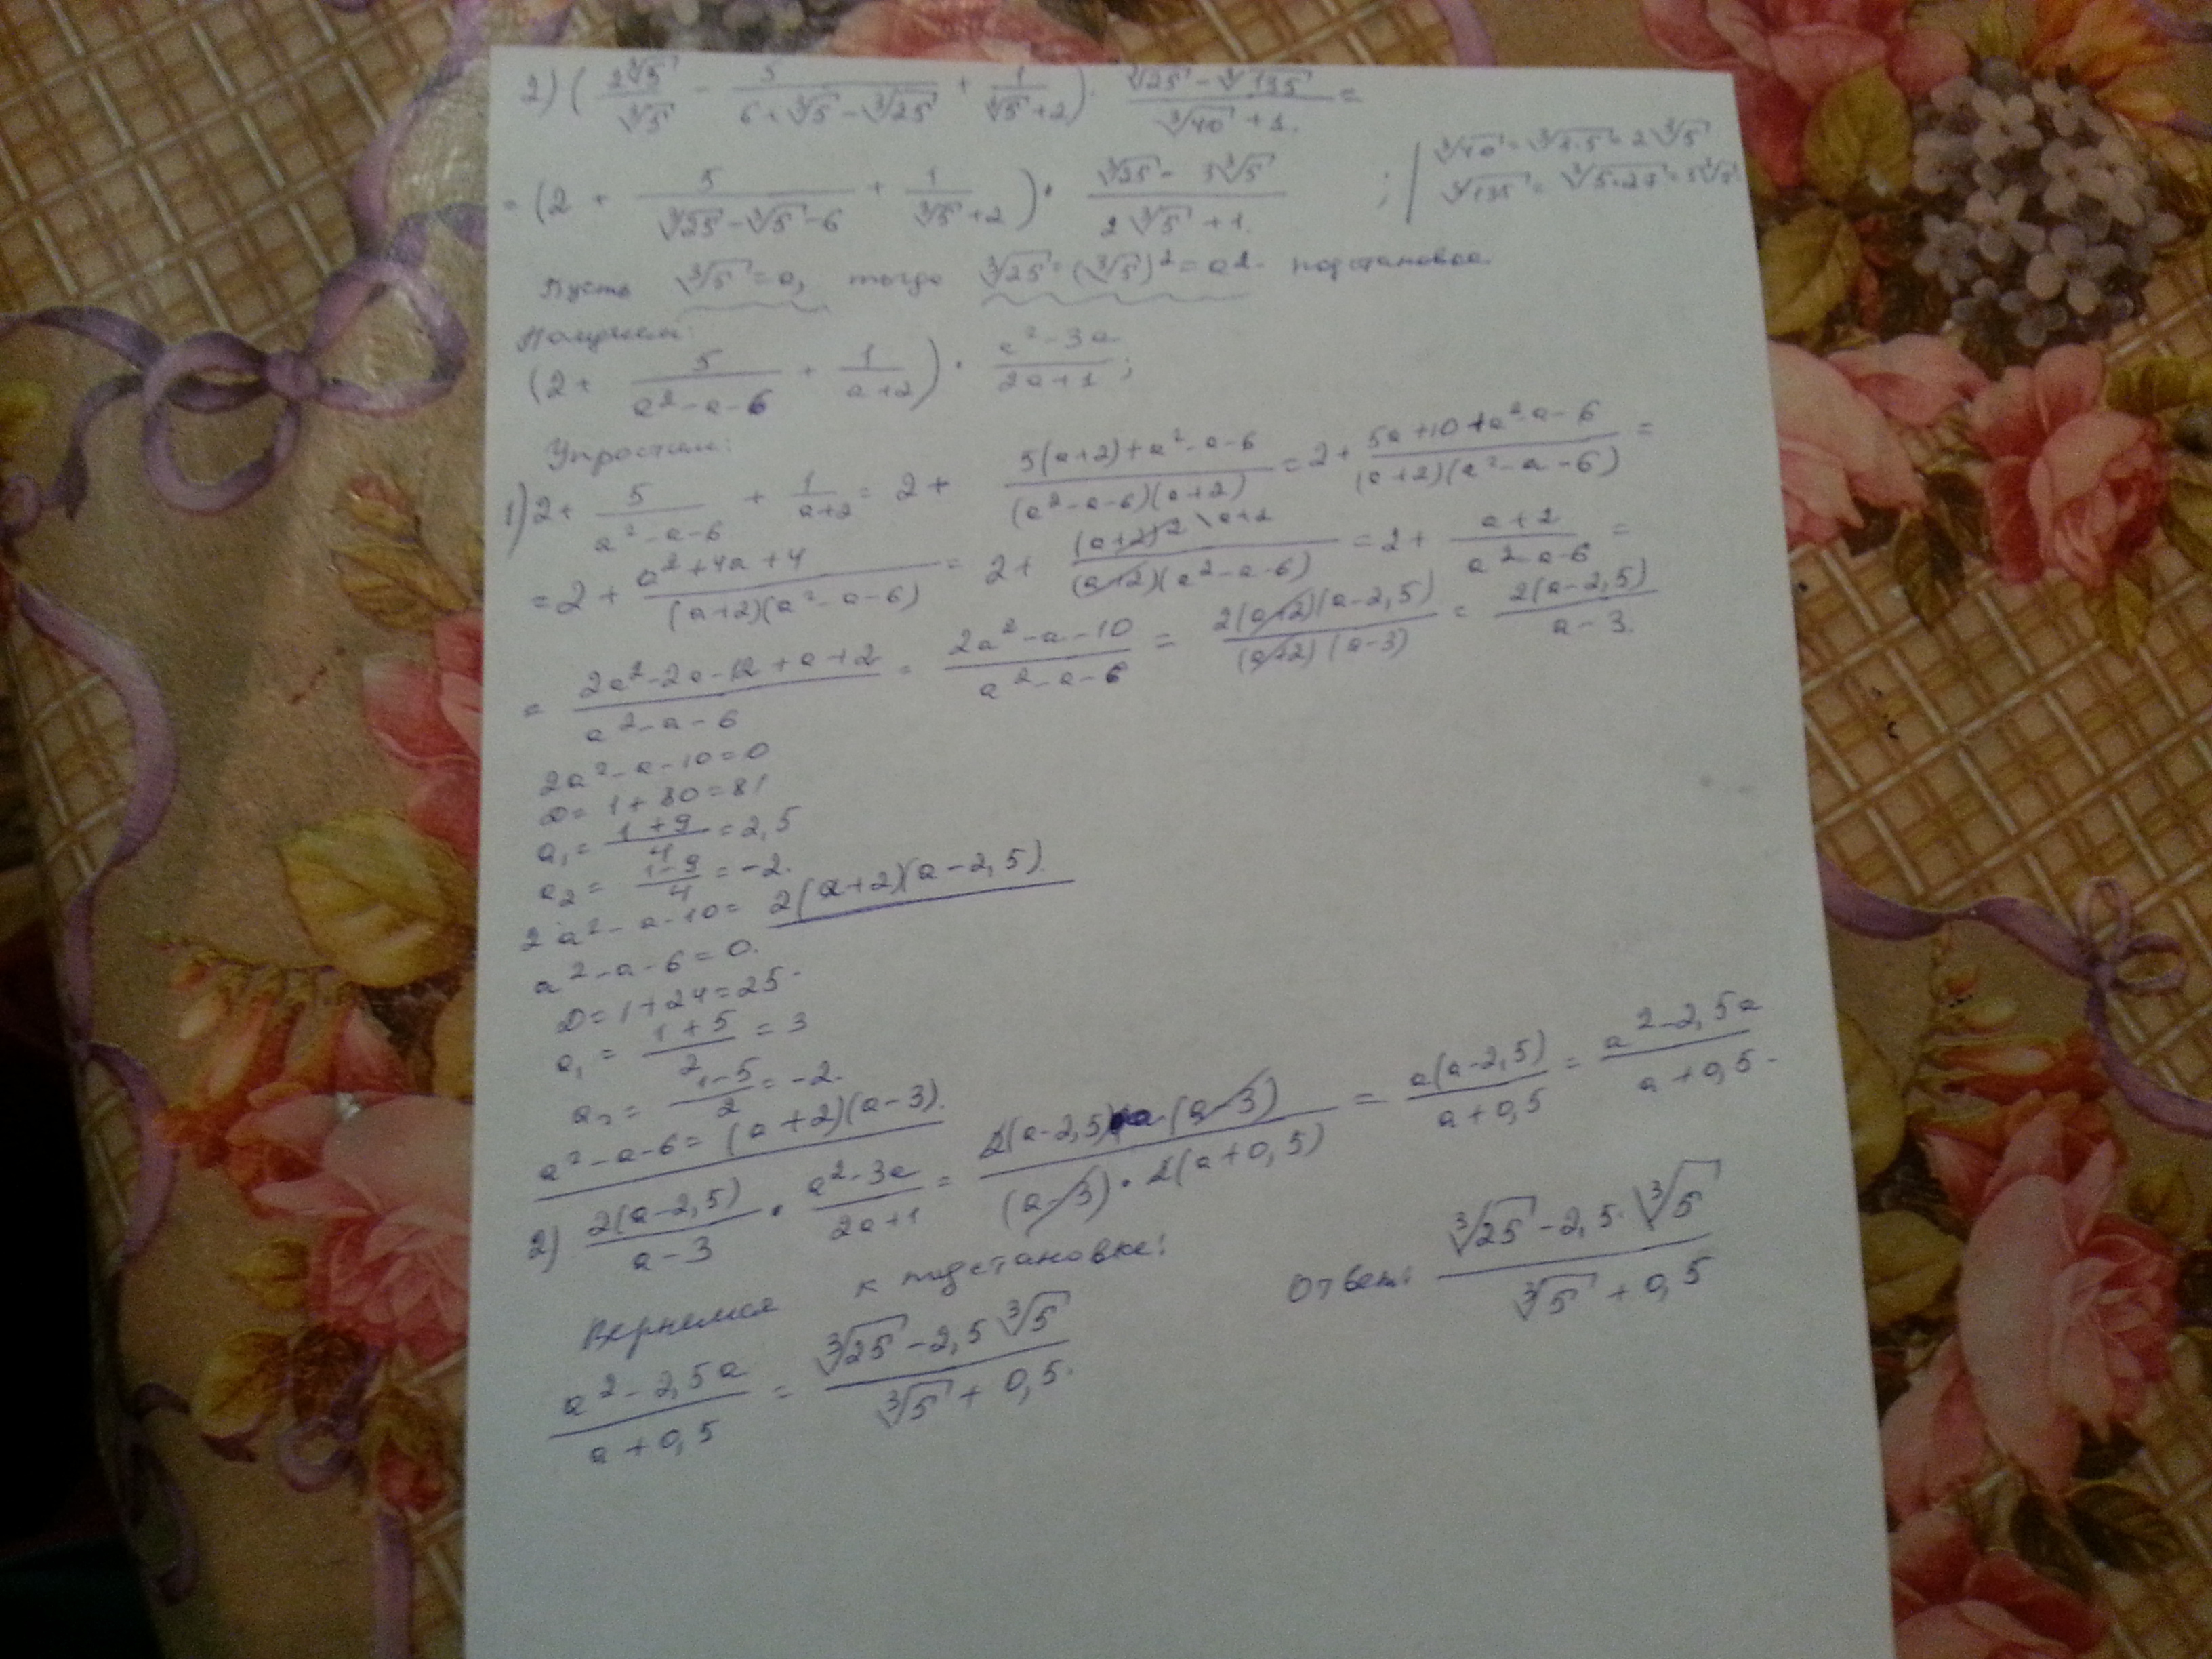 2) ( 2∛5/∛5 - 5/(6+∛5-∛25) + 1/(∛5+2) ) · (∛25-∛135)/(∛40+1) =
= (2 + 5/(∛25-∛5-6) + 1/(∛5+2) ) · (∛25-3∛5)/(2∛5+1) ; | ∛40=∛8·5=2∛5
∛135=∛5·27=3∛5
Пусть ∛5=a, тогда ∛25=(∛5)²=a² - подстановка
Получаем:
(2+ 5/(a²-a-6) + 1/(a+2) ) · (a²-3a)/(2a+1) ;
Упростим:
1) 2+ 5/(a²-a-6) + 1/(a+2) = 2+ (5(a+2)+a²-a-6)/((a²-a-6)(a+2)) = 2+ (5a+10+a²-a-6)/((a+2)(a²-a-6)) =
= 2 + (a²+4a+4)/((a+2)(a²-a-6)) = 2+ (a+2)² \a+2/((a+2)(a²-a-6)) = 2+ (a+2)/(a²-a-6) =
= (2a²-2a-12+a+2)/(a²-a-6) = (2a²-a-10)/(a²-a-6) = 2(a+2)(a-2,5)/((a+2)(a-3)) = 2(a-2,5)/(a-3).
2a²-a-10=0
D= 1+80=81
a₁= (1+9)/4 =2,5
a₂= (1-9)/4 =-2.
2a²-a-10= 2(a+2)(a-2,5).
a²-a-6=0.
D=1+24=25.
a₁ = (1+5)/2 = 3
a₂ = (1-5)/2 = -2.
a²-a-6= (a+2)(a-3).
2) 2(a-2,5)/(a-3) · (a²-3a)/(2a+1) = 2(a-2,5)a·(a-3)/((a-3)·2(a+0,5)) = a(a-2,5)/(a+0,5) = (a²-2,5a)/(a+0,5).
Вернемся к подстановке:
(a²-2,5a)/(a+0,5) = (∛25-2,5∛5)/(∛5+0,5).
Ответ: (∛25-2,5·∛5)/(∛5+0,5)